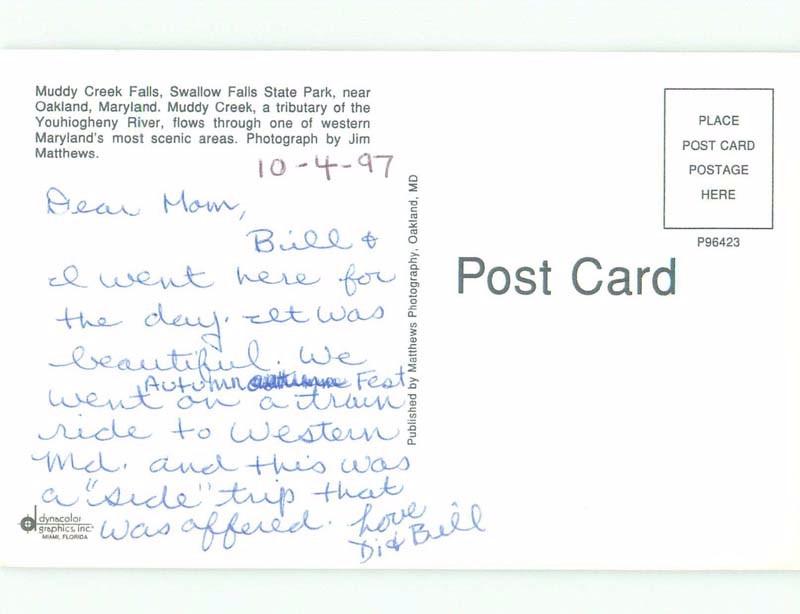 Muddy Creek Falls, Swallow Falls State Park, near
Oakland, Maryland. Muddy Creek, a tributary of the
Youhiogheny River, flows through one of western
Maryland's most scenic areas. Photograph by Jim
Matthews.
10-4-97
Dear Mom,
Bill &
I went here for
the day. It was
beautiful. We
Autumn Fest
went on a train
ride to Western
Md. and this was
a "side" trip that
was offered. Love
Di & Bill
dynacolor
graphics, inc.
MIAMI, FLORIDA
Published by Matthews Photography, Oakland, MD
PLACE
POST CARD
POSTAGE
HERE
P96423
Post Card